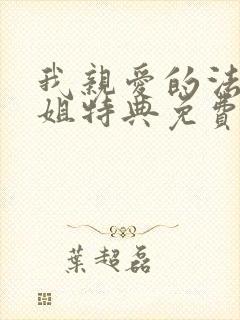 我親愛的法
姐特典免費
葉超磊